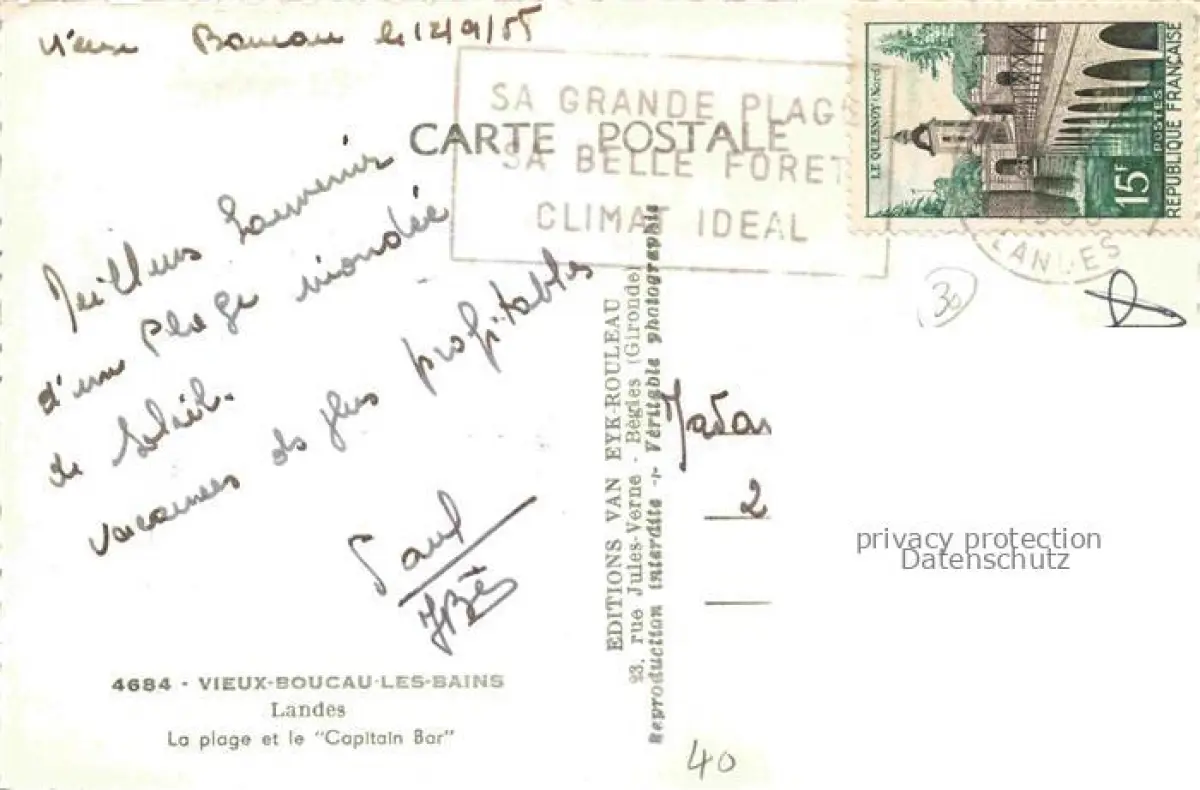 Vieux Boucau le 12/9/55
CARTE POSTALE
SA GRANDE PLAGE
SA BELLE FORET
CLIMAT IDEAL
LE QUESNOY (Nord)
15F
POSTES
REPUBLIQUE FRANÇAISE
LANDES
30
Meilleurs Souvenirs
d'une plage inondée
de Soleil.
vacances des plus profitables
Paul
EDITIONS VAN EYK-ROULEAU
23, rue Jules-Verne - Bègles (Gironde)
Reproduction interdite -:- Véritable photographie
2
privacy protection
Datenschutz
4684 - VIEUX-BOUCAU-LES-BAINS
Landes
La plage et le "Capitain Bar"
40